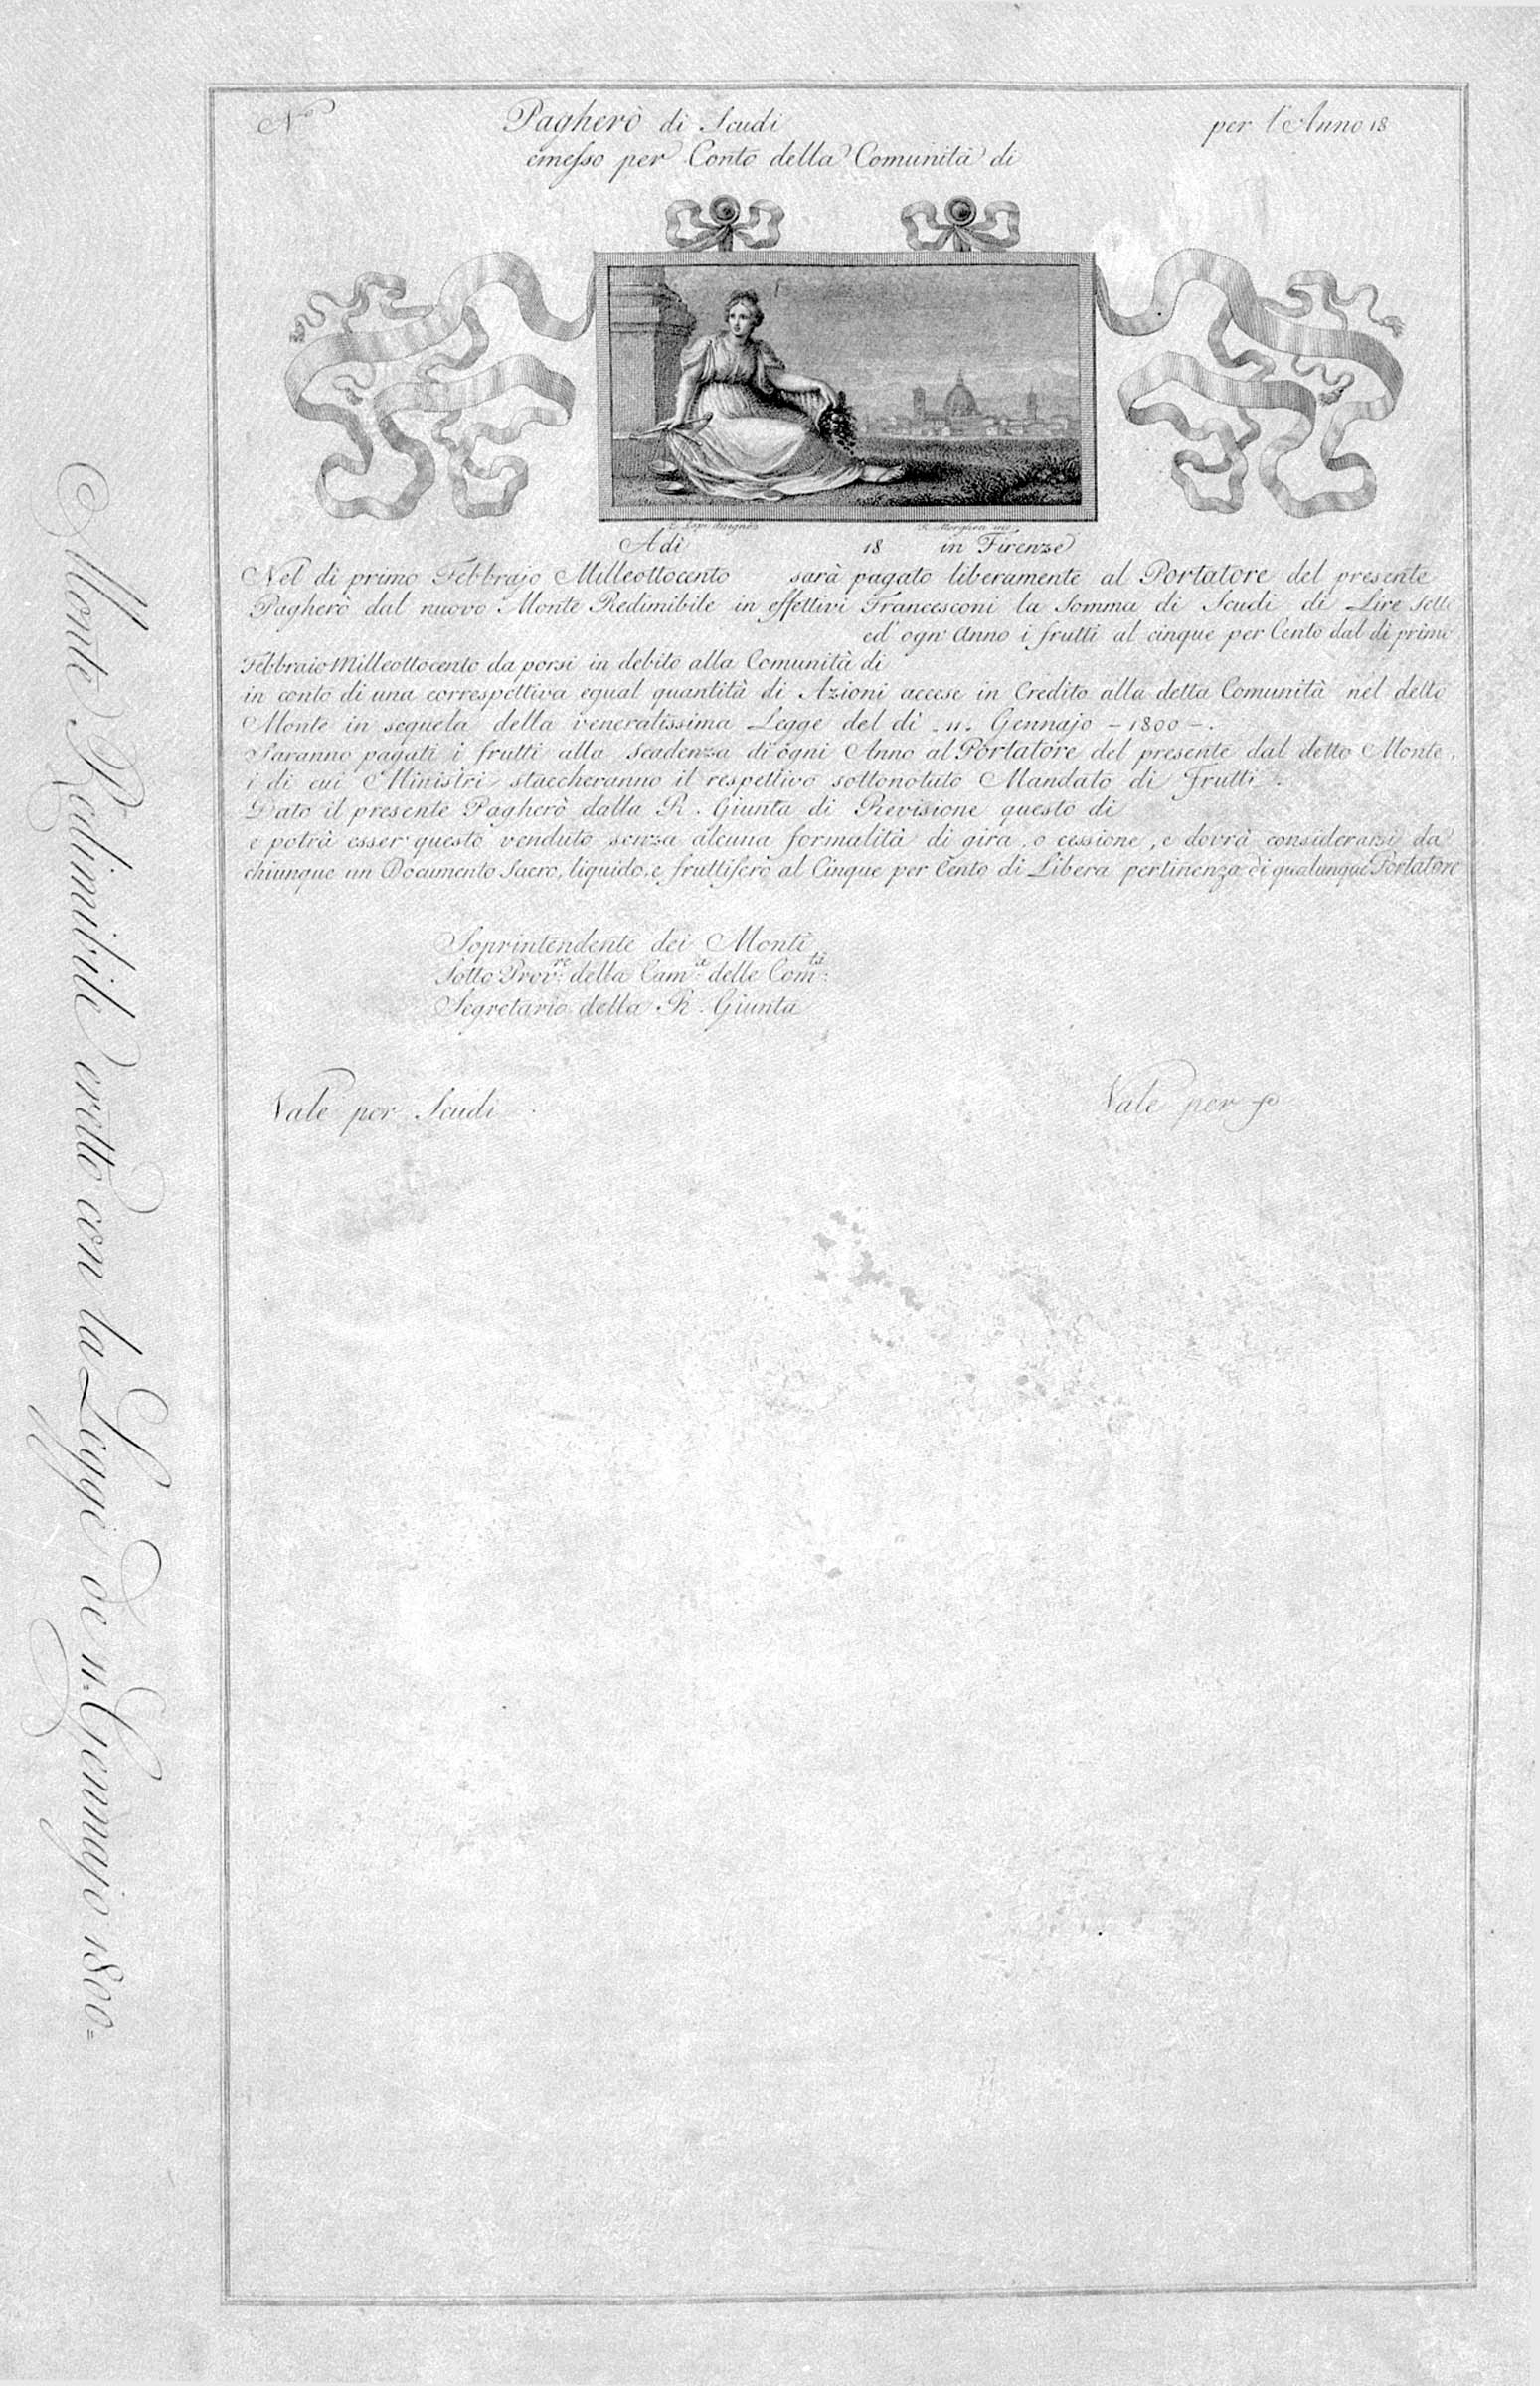 No
Pagherò di Scudi
per l'Anno 18
emesso per Conto della Comunità di
R. Morghen inc.
Adì 18 in Firenze
Nel dì primo Febbrajo Milleottocento sarà pagato liberamente al Portatore del presente
Pagherò dal nuovo Monte Redimibile in effettivi Francesconi la Somma di Scudi di Lire Sette
ed' ogn' Anno i frutti al cinque per Cento dal dì primo
Febbraio Milleottocento da porsi in debito alla Comunità di
in conto di una correspettiva egual quantità di Azioni accese in Credito alla detta Comunità nel detto
Monte in sequela della veneratissima Legge del dì . 11 . Gennajo - 1800 - .
Saranno pagati i frutti alla scadenza di ogni Anno al Portatore del presente dal detto Monte ,
i di cui Ministri staccheranno il respettivo sottonotato Mandato di Frutti .
Dato il presente Pagherò dalla R . Giunta di Revisione questo dì
e potrà esser questo venduto senza alcuna formalità di gira , o cessione , e dovrà considerarsi da
chiunque un Documento Sacro, liquido, e fruttifero al Cinque per Cento di Libera pertinenza di qualunque Portatore
Soprintendente dei Monti
Sotto Prov.re della Cam.a delle Com.tà
Segretario della R . Giunta
Vale per Scudi
Vale per
Monte Redimibile eretto con la Legge de 11= Gennajo 1800=